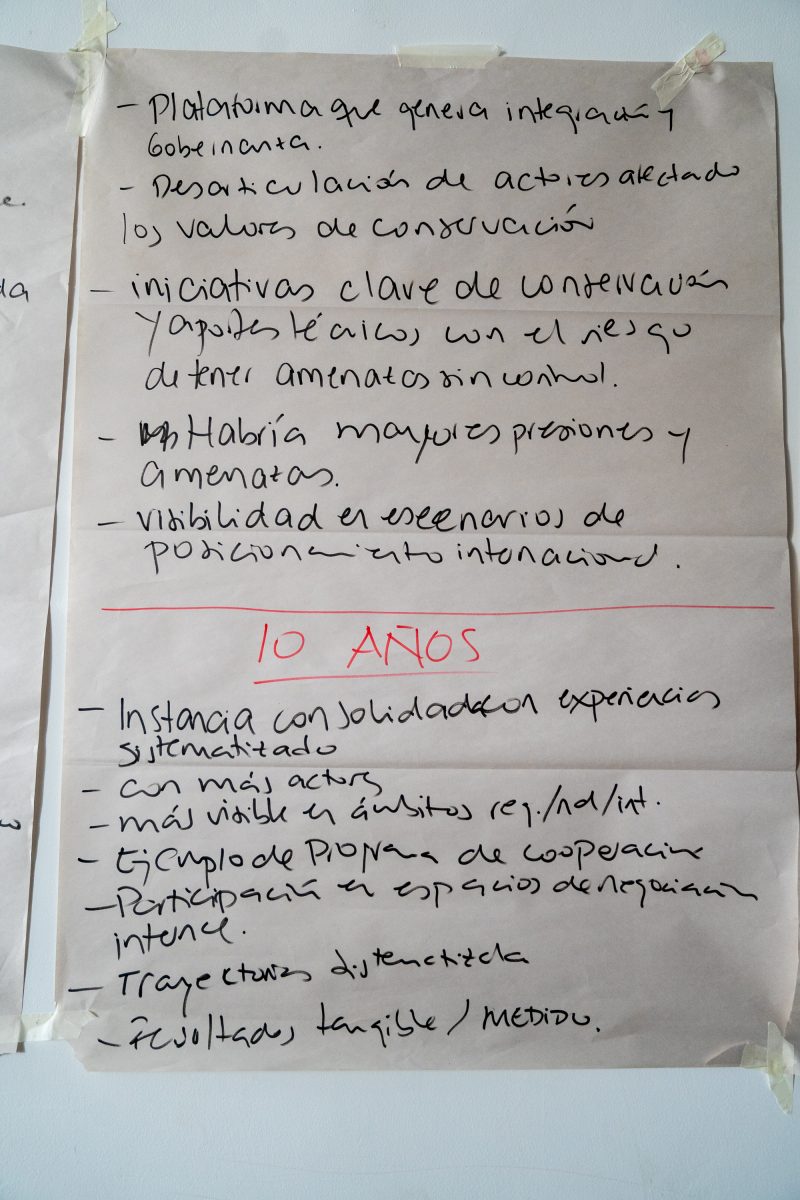 - Plataforma que genera integración y
Gobernanza.
- Desarticulación de actores afectado
los valores de conservación
- iniciativas clave de conservación
y aportes técnicos con el riesgo
de tener amenazas sin control.
- Habría mayores presiones y
amenazas.
- visibilidad en escenarios de
posicionamiento internacional.
10 AÑOS
- Instancia consolidada con experiencias
sistematizado
- con más actores
- más visible en ámbitos reg./nal/int.
- Ejemplo de Programa de cooperación
- Participación en espacios de negociación
interna.
- Trayectorias sistematizada
- Resultados tangible / MEDIDO.